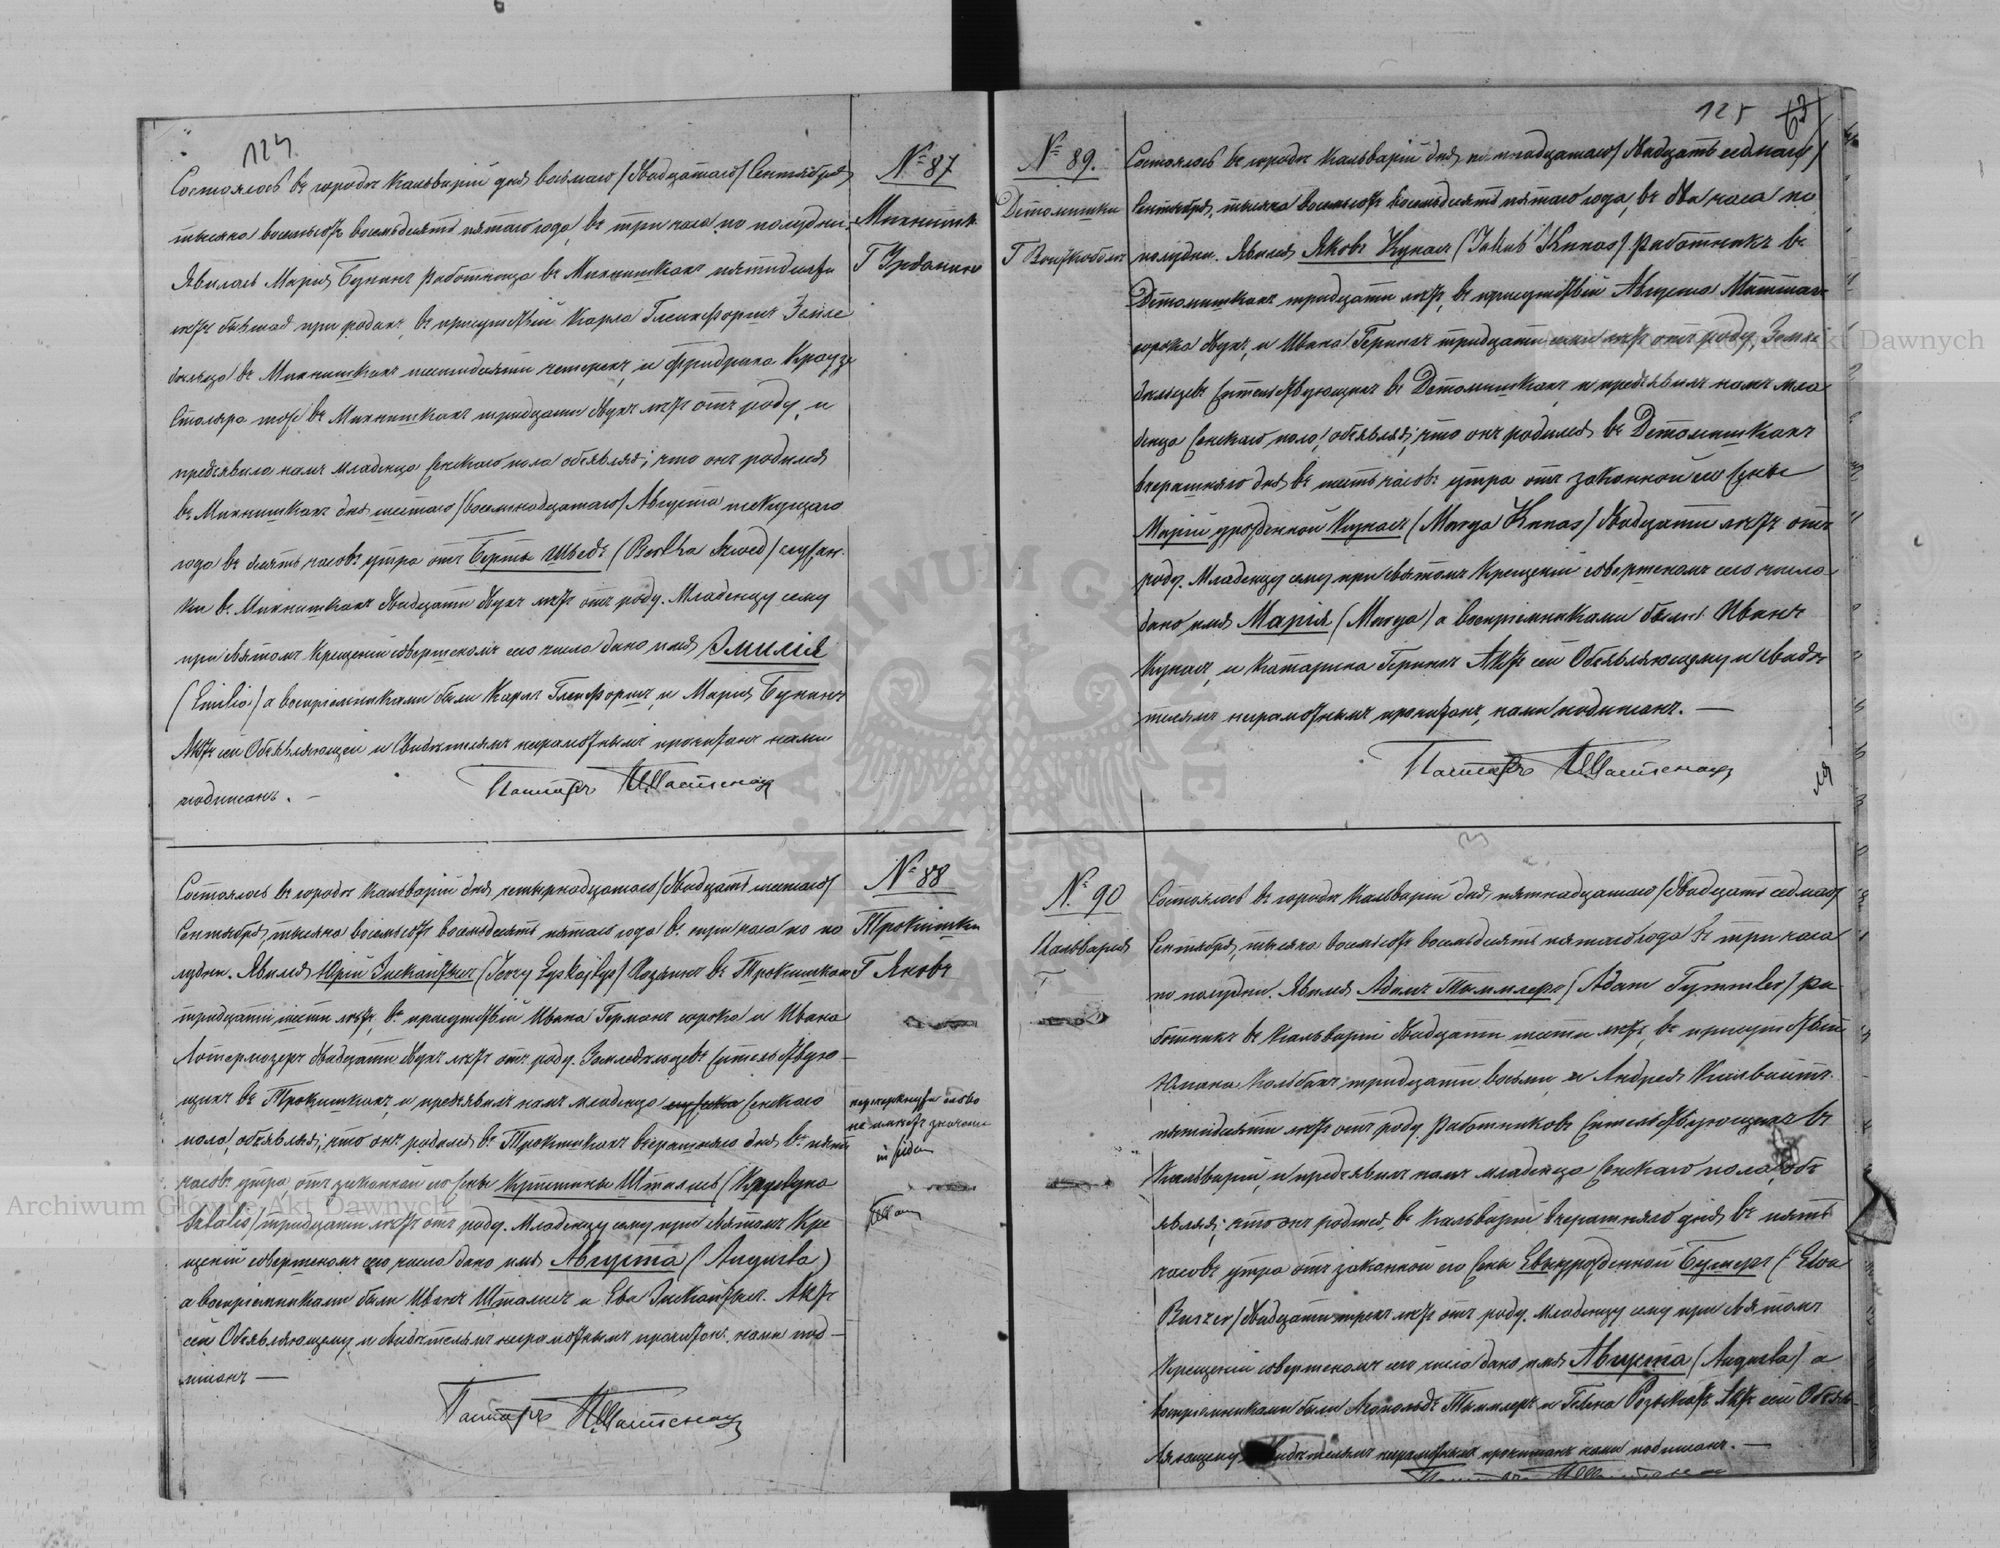 124
№ 87
Состоялось въ городѣ Кальваріи дня восьмаго /двадцатаго/ Сентября
тысяча восемьсотъ восемьдесятъ пятаго года, въ три часа по полудни.
Явилась Марія Букинъ работница въ Микнишкахъ пятидесяти
лѣтъ бывшая при родахъ, въ присутствіи Карла Земле
дѣльца въ Микнишкахъ шестидесяти четырехъ, и Фридриха Краузе
Столяра тоже въ Микнишкахъ тридцати двухъ лѣтъ отъ роду, и
предъявила намъ младенца женскаго пола объявляя; что онъ родился
въ Микнишкахъ дня шестаго /восемнадцатаго/ Августа текущаго
года въ десять часовъ утра отъ Берты Шведъ (Bertha Szwed) служан-
ки въ Микнишкахъ двадцати двухъ лѣтъ отъ роду. Младенцу сему
при святомъ Крещеніи совершенномъ сего числа дано имя Эмилія
(Emilia) а воспріемниками были Карлъ и Марія Букинъ
Актъ сей Объявляющей и Свидѣтелямъ неграмотнымъ прочитанъ нами
подписанъ. —
Пасторъ
№ 88
Трокишки
Г Яновъ
Состоялось въ городѣ Кальваріи дня четырнадцатаго /двадцать шестаго/
Сентября, тысяча восемьсотъ восемьдесятъ пятаго года въ три часа по по
лудни. Явился Юрій (Jerzy) Хозяинъ въ Трокишкахъ
тридцати шести лѣтъ, въ присутствіи Ивана Германъ сорока и Ивана
двадцати двухъ лѣтъ отъ роду. Земледѣльцевъ жительствую-
щихъ въ Трокишкахъ, и предъявилъ намъ младенца женскаго
пола, объявляя; что онъ родился въ Трокишкахъ вчерашняго дня въ пять
часовъ утра, отъ законной его жены Кристины Шталисъ (Krystyna
Sztalis) тридцати лѣтъ отъ роду. Младенцу сему при Святомъ Кре
щеніи совершенномъ сего числа дано имя Августа (Augusta)
а воспріемниками были Иванъ Шталисъ и Ева Актъ
сей Объявляющему и Свидѣтелямъ неграмотнымъ прочитанъ нами под-
писанъ —
перечеркнутое слово
не имѣетъ значенія
Пасторъ
125
63
№ 89.
Детомишки
Г
Состоялось въ городѣ Кальваріи дня пятнадцатаго /двадцать седмаго/
Сентября, тысяча восемьсотъ восемьдесятъ пятаго года, въ два часа по
полудни. Явился Яковъ Кунасъ (Jakub Kunas) работникъ въ
Детомишкахъ тридцати лѣтъ, въ присутствіи Августа
сорока двухъ, и Ивана Герингъ тридцати лѣтъ отъ роду, Земле
дѣльцевъ жительствующихъ въ Детомишкахъ, и предъявилъ намъ мла
денца женскаго пола, объявляя; что онъ родился въ Детомишкахъ
вчерашняго дня въ шесть часовъ утра отъ законной его жены
Маріи урожденной Кунасъ (Marya Kunas) двадцати лѣтъ отъ
роду. Младенцу сему при святомъ Крещеніи совершенномъ сего числа
дано имя Марія (Marya) а воспріемниками были Иванъ
Кунасъ, и Катарина Герингъ Актъ сей Объявляющему и Свидѣ
телямъ неграмотнымъ прочитанъ, нами подписанъ. —
Пасторъ
№ 90
Кальварія
Г
Состоялось въ городѣ Кальваріи дня пятнадцатаго /двадцать седмаго/
Сентября, тысяча восемьсотъ восемьдесятъ пятаго года въ три часа
по полудни. Явился Адамъ Тыммлеръ (Adam Tymmler) ра
ботникъ въ Кальваріи двадцати шести лѣтъ, въ присутствіи
тридцати восьми и Андрея
пятидесяти лѣтъ отъ роду работниковъ жительствующихъ въ
Кальваріи, и предъявилъ намъ младенца женскаго пола, объ
являя; что онъ родился въ Кальваріи вчерашняго дня въ пять
часовъ утра отъ законной его жены Евы урожденной (Ewa
двадцати трехъ лѣтъ отъ роду. Младенцу сему при Святомъ
Крещеніи совершенномъ сего числа дано имя Августа (Augusta) а
воспріемниками были Леопольдъ Тыммлеръ и Актъ сей Объяв-
ляющему Свидѣтелямъ неграмотнымъ прочитанъ нами подписанъ. —
Archiwum Główne Akt Dawnych
Archiwum Główne Akt Dawnych